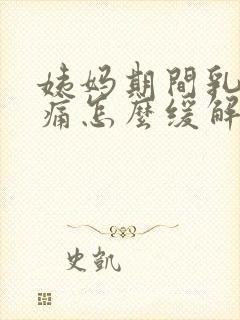 姨妈期間乳
痛怎麼缓解
史凱